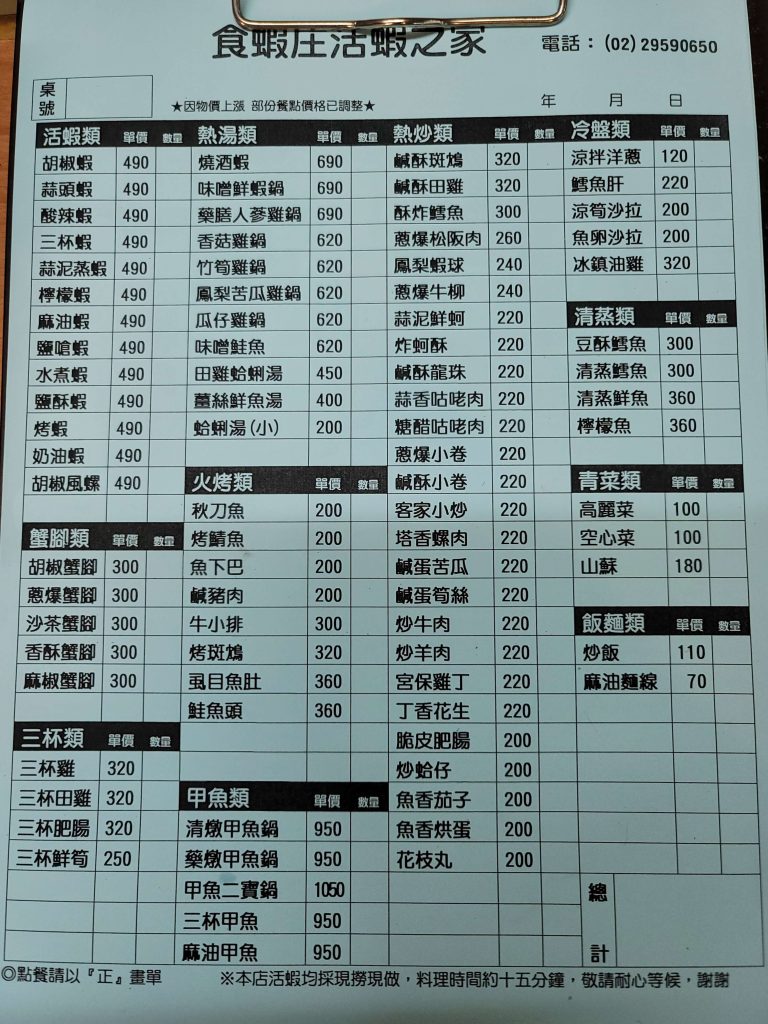 食蝦庄活蝦之家
電話：(02)29590650
桌號
★因物價上漲 部份餐點價格已調整★
年 月 日
活蝦類 單價 數量
胡椒蝦 490
蒜頭蝦 490
酸辣蝦 490
三杯蝦 490
蒜泥蒸蝦 490
檸檬蝦 490
麻油蝦 490
鹽嗆蝦 490
水煮蝦 490
鹽酥蝦 490
烤蝦 490
奶油蝦 490
胡椒風螺 490
蟹腳類 單價 數量
胡椒蟹腳 300
蔥爆蟹腳 300
沙茶蟹腳 300
香酥蟹腳 300
麻椒蟹腳 300
三杯類 單價 數量
三杯雞 320
三杯田雞 320
三杯肥腸 320
三杯鮮筍 250
熱湯類 單價 數量
燒酒蝦 690
味噌鮮蝦鍋 690
藥膳人蔘雞鍋 690
香菇雞鍋 620
竹筍雞鍋 620
鳳梨苦瓜雞鍋 620
瓜仔雞鍋 620
味噌鮭魚 620
田雞蛤蜊湯 450
薑絲鮮魚湯 400
蛤蜊湯(小) 200
火烤類 單價 數量
秋刀魚 200
烤鯖魚 200
魚下巴 200
鹹豬肉 200
牛小排 300
烤斑鴆 320
虱目魚肚 360
鮭魚頭 360
甲魚類 單價 數量
清燉甲魚鍋 950
藥燉甲魚鍋 950
甲魚二寶鍋 1050
三杯甲魚 950
麻油甲魚 950
熱炒類 單價 數量
鹹酥斑鴆 320
鹹酥田雞 320
酥炸鱈魚 300
蔥爆松阪肉 260
鳳梨蝦球 240
蔥爆牛柳 240
蒜泥鮮蚵 220
炸蚵酥 220
鹹酥龍珠 220
蒜香咕咾肉 220
糖醋咕咾肉 220
蔥爆小卷 220
鹹酥小卷 220
客家小炒 220
塔香螺肉 220
鹹蛋苦瓜 220
鹹蛋筍絲 220
炒牛肉 220
炒羊肉 220
宮保雞丁 220
丁香花生 220
脆皮肥腸 200
炒蛤仔 200
魚香茄子 200
魚香烘蛋 200
花枝丸 200
冷盤類 單價 數量
涼拌洋蔥 120
鱈魚肝 220
涼筍沙拉 200
魚卵沙拉 200
冰鎮油雞 320
清蒸類 單價 數量
豆酥鱈魚 300
清蒸鱈魚 300
清蒸鮮魚 360
檸檬魚 360
青菜類 單價 數量
高麗菜 100
空心菜 100
山蘇 180
飯麵類 單價 數量
炒飯 110
麻油麵線 70
總計
◎點餐請以『正』畫單
※本店活蝦均採現撈現做，料理時間約十五分鐘，敬請耐心等候，謝謝